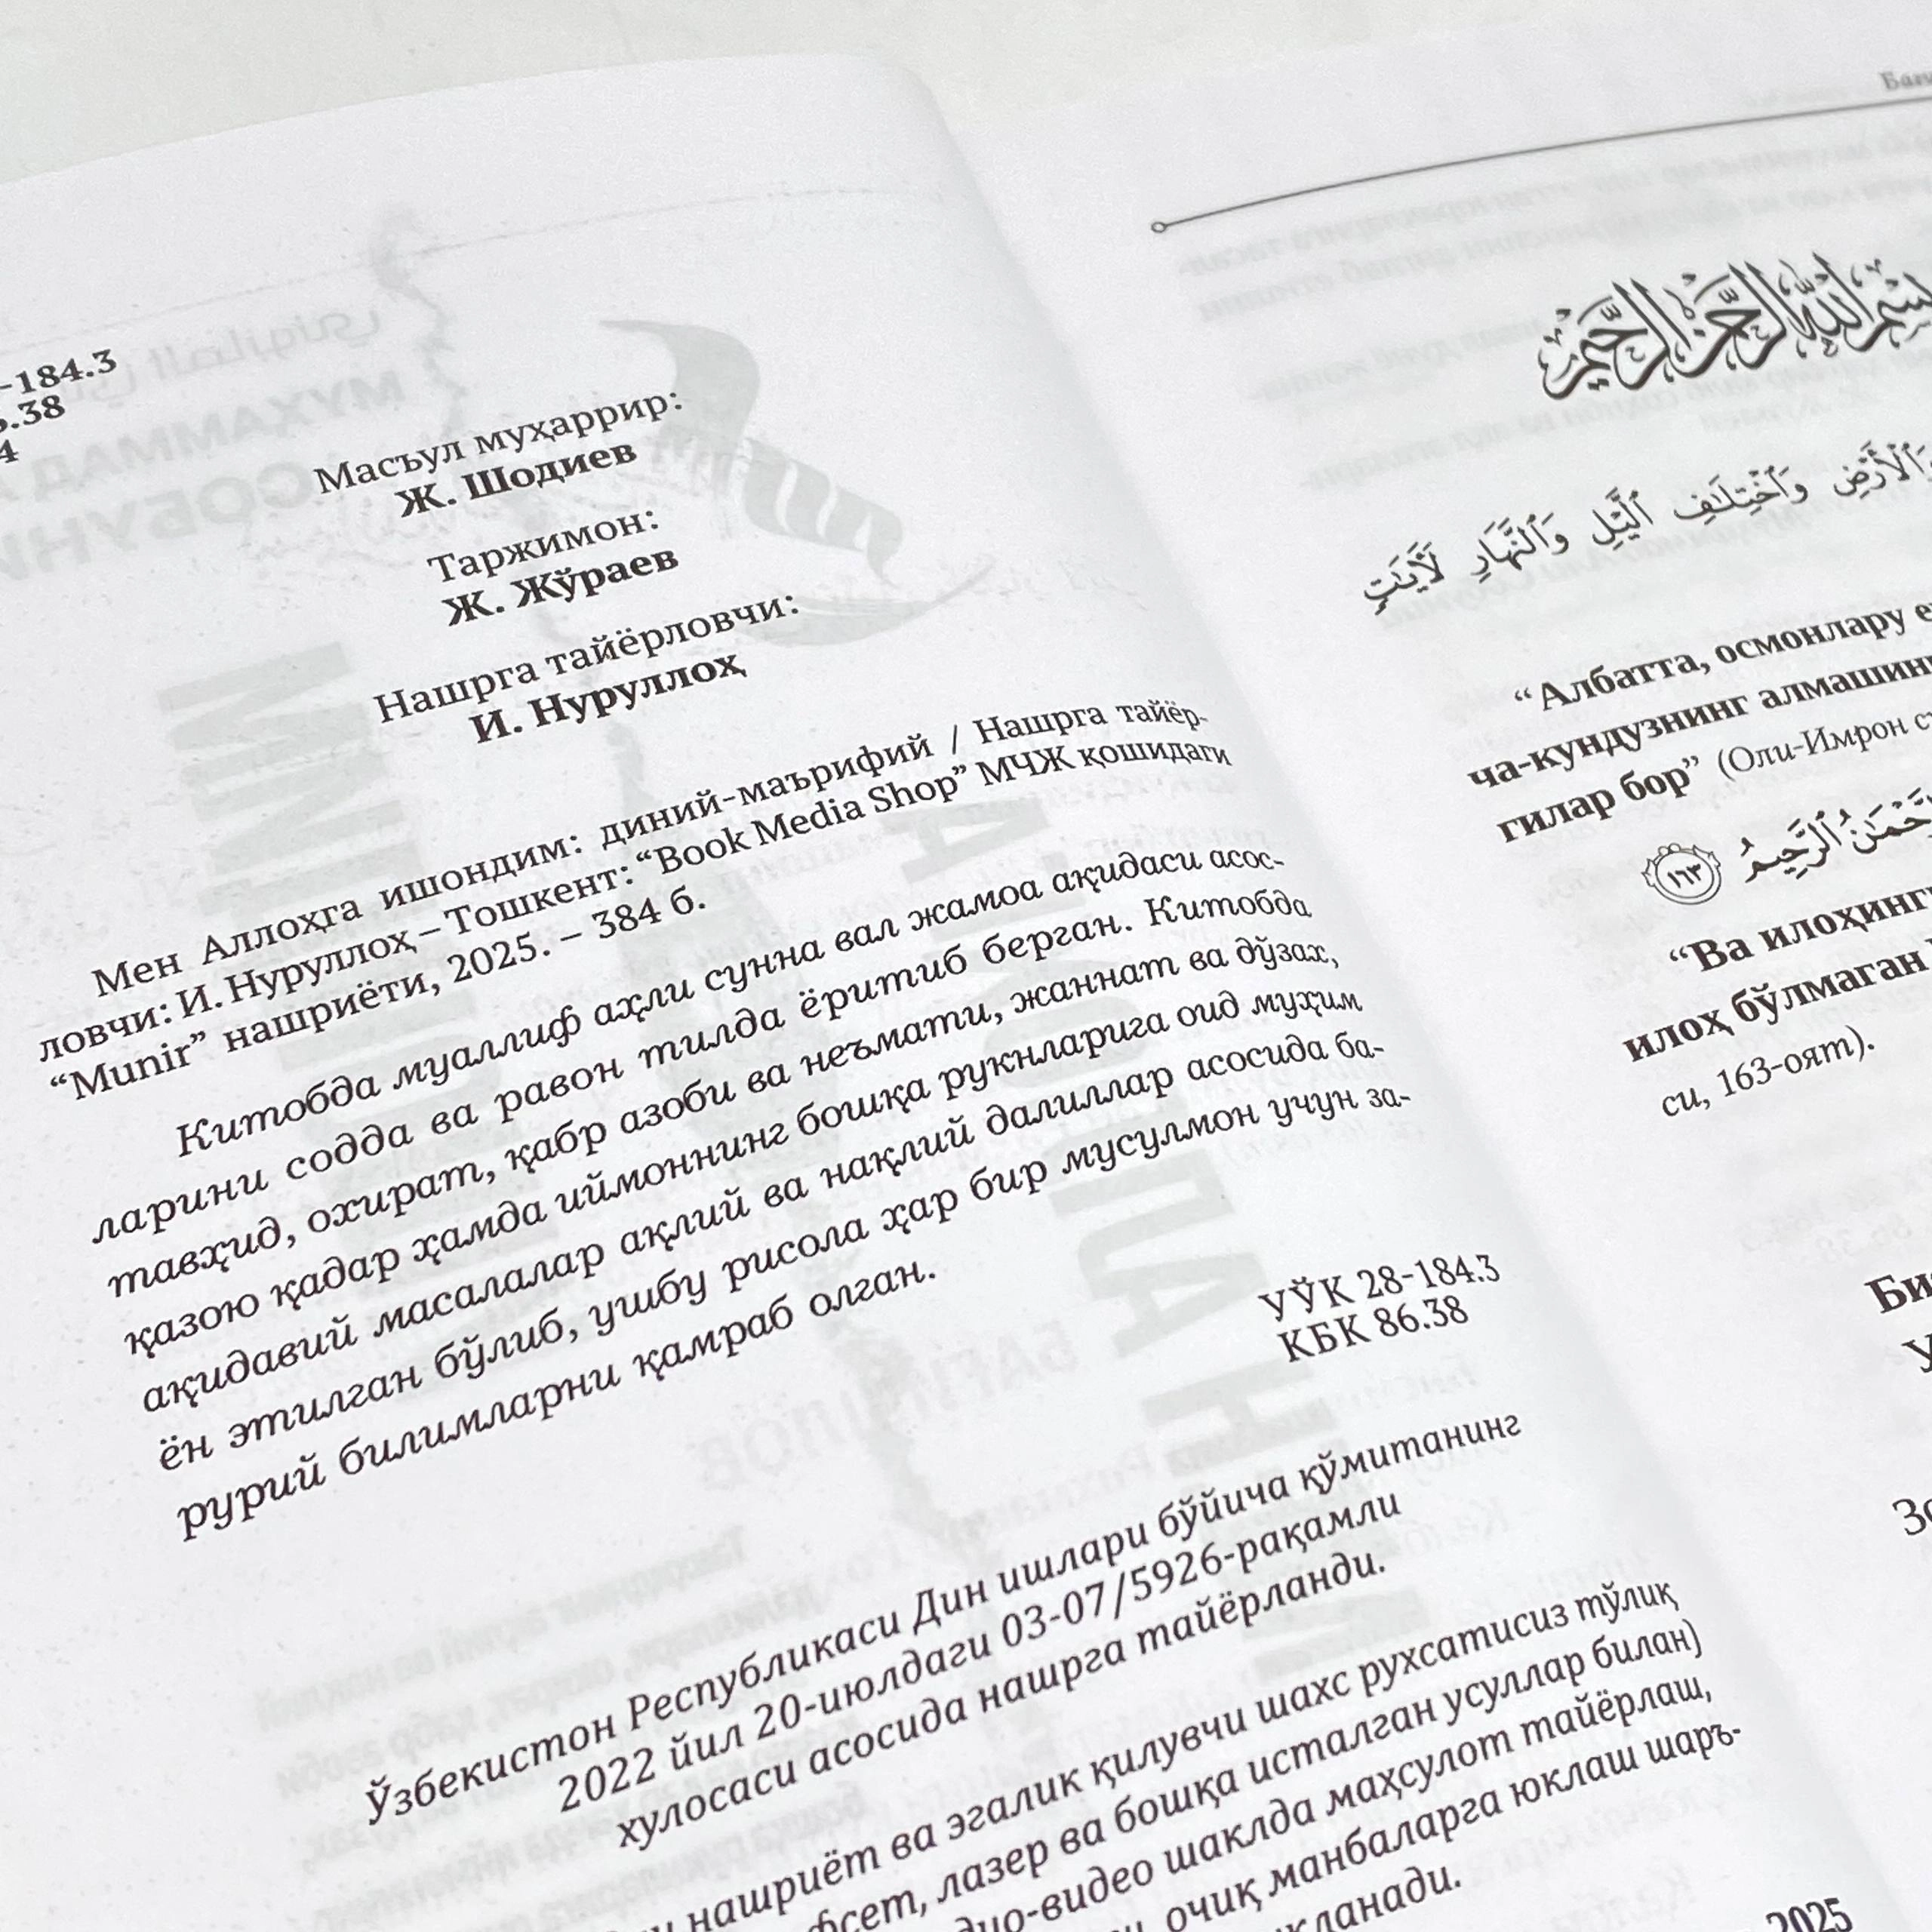 -184.3
.38
4
Масъул муҳаррир:
Ж. Шодиев
Таржимон:
Ж. Жўраев
Нашрга тайёрловчи:
И. Нуруллоҳ
Мен Аллоҳга ишондим: диний-маърифий / Нашрга тайёр-
ловчи: И. Нуруллоҳ – Тошкент: “Book Media Shop” МЧЖ қошидаги
“Munir” нашриёти, 2025. – 384 б.
Китобда муаллиф аҳли сунна вал жамоа ақидаси асос-
ларини содда ва равон тилда ёритиб берган. Китобда
тавҳид, охират, қабр азоби ва неъмати, жаннат ва дўзах,
қазою қадар ҳамда иймоннинг бошқа рукнларига оид муҳим
ақидавий масалалар ақлий ва нақлий далиллар асосида ба-
ён этилган бўлиб, ушбу рисола ҳар бир мусулмон учун за-
рурий билимларни қамраб олган.
УЎК 28-184.3
КБК 86.38
Ўзбекистон Республикаси Дин ишлари бўйича қўмитанинг
2022 йил 20-июлдаги 03-07/5926-рақамли
хулосаси асосида нашрга тайёрланди.
нашриёт ва эгалик қилувчи шахс рухсатисиз тўлиқ
лазер ва бошқа исталган усуллар билан)
видео шаклда маҳсулот тайёрлаш,
очиқ манбаларга юклаш шаръ-
2025
بسم الله الرحمن الرحيم
وَٱلْأَرْضِ وَٱخْتِلَٰفِ ٱلَّيْلِ وَٱلنَّهَارِ لَأٓيَٰتٍ
“Албатта, осмонлару
ча-кундузнинг
гилар бор” (Оли-Имрон
ٱلرَّحِيمُ ١٦٣
“Ва
илоҳ бўлмаган
си, 163-оят).